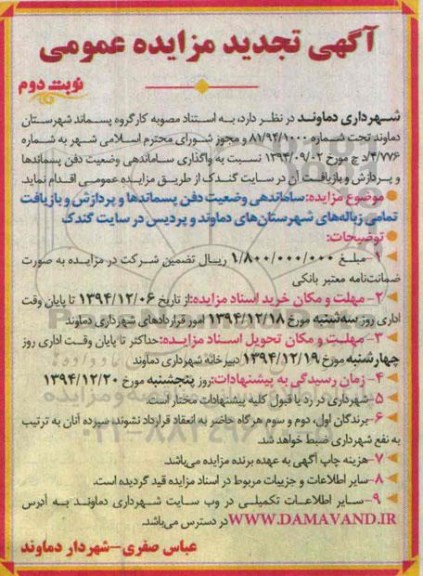 آگهی تجدید مزایده عمومی
نوبت دوم
شهرداری دماوند در نظر دارد، به استناد مصوبه کارگروه پسماند شهرستان
دماوند تحت شماره ۸۱/۹۴/۱۰۰۰ و مجوز شورای محترم اسلامی شهر به شماره
۴/۷۷۶/د ج مورخ ۱۳۹۴/۰۹/۰۲ نسبت به واگذاری ساماندهی وضعیت دفن پسماندها
و پردازش و بازیافت آن در سایت گندک از طریق مزایده عمومی اقدام نماید.
موضوع مزایده: ساماندهی وضعیت دفن پسماندها و پردازش و بازیافت
تمامی زباله‌های شهرستان‌های دماوند و پردیس در سایت گندک
توضیحات:
۱- مبلغ ۱/۸۰۰/۰۰۰/۰۰۰ ریال تضمین شرکت در مزایده به صورت
ضمانت‌نامه معتبر بانکی
۲- مهلت و مکان خرید اسناد مزایده: از تاریخ ۱۳۹۴/۱۲/۰۶ تا پایان وقت
اداری روز سه‌شنبه مورخ ۱۳۹۴/۱۲/۱۸ امور قراردادهای شهرداری دماوند
۳- مهلت و مکان تحویل اسناد مزایده: حداکثر تا پایان وقت اداری روز
چهارشنبه مورخ ۱۳۹۴/۱۲/۱۹ دبیرخانه شهرداری دماوند
۴- زمان رسیدگی به پیشنهادات: روز پنجشنبه مورخ ۱۳۹۴/۱۲/۲۰
۵- شهرداری در رد یا قبول کلیه پیشنهادات مختار است.
۶- برندگان اول، دوم و سوم هرگاه حاضر به انعقاد قرارداد نشوند، سپرده آنان به ترتیب
به نفع شهرداری ضبط خواهد شد.
۷- هزینه چاپ آگهی به عهده برنده مزایده می‌باشد.
۸- سایر اطلاعات و جزییات مربوط در اسناد مزایده قید گردیده است.
۹- سایر اطلاعات تکمیلی در وب سایت شهرداری دماوند به آدرس
WWW.DAMAVAND.IR در دسترس می‌باشد.
عباس صفری - شهردار دماوند